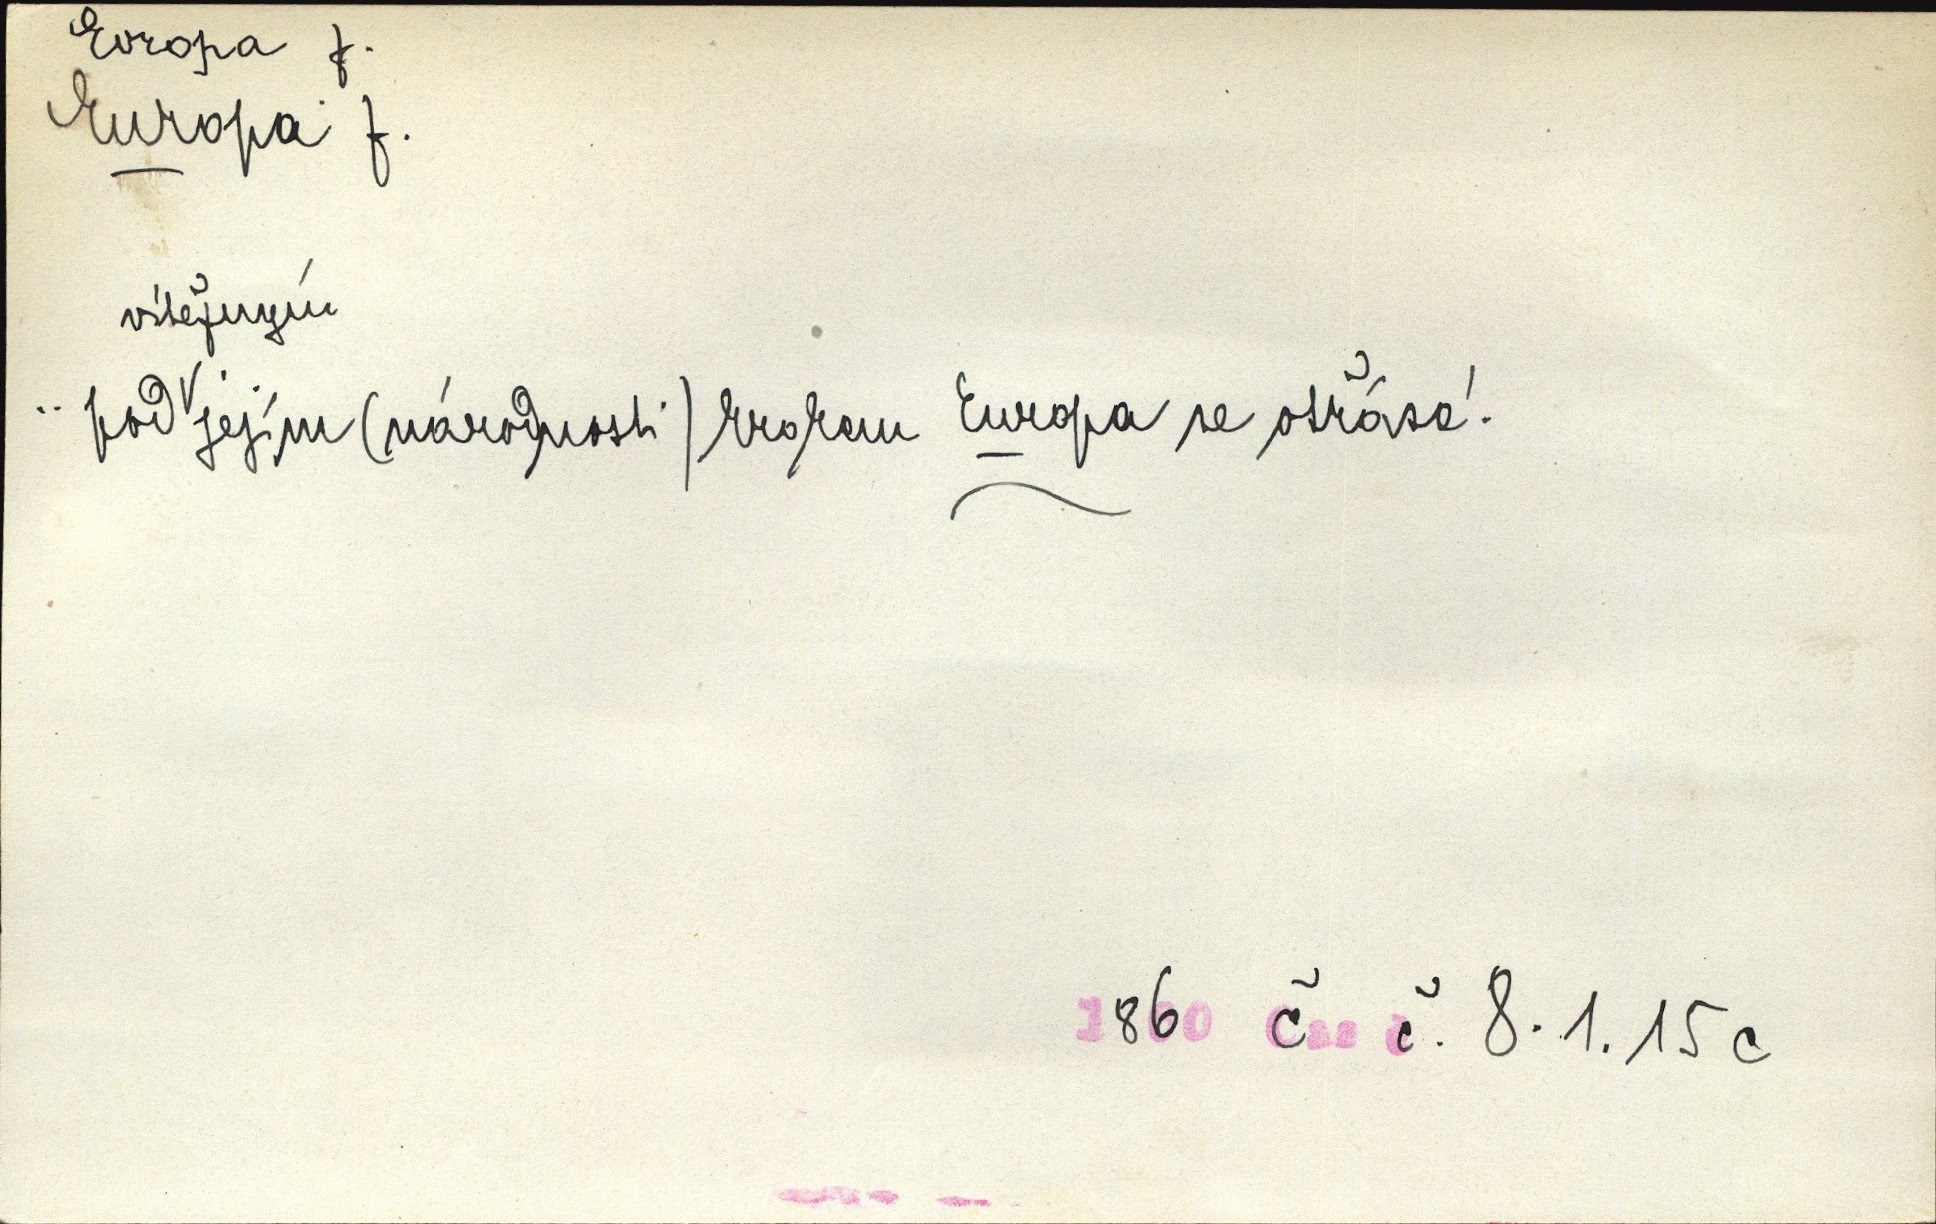 Evropa f.
Europa f.
vítězným
.. pod jejím (národnosti) krokem Europa se otřásá.
1860 Čas č. 8. 1. 15 c